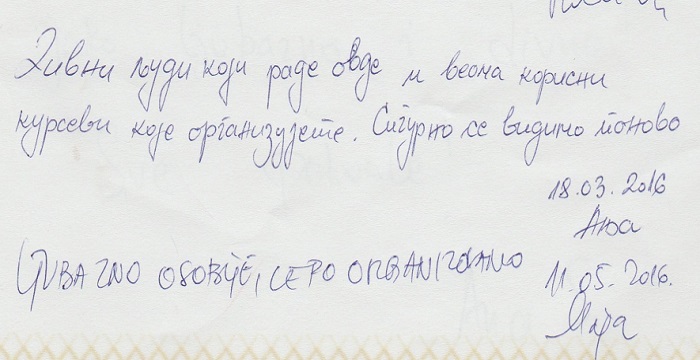 Дивни људи који раде овде и веома корисни
курсеви које организујете. Сигурно се видимо поново
18.03.2016
Ања
LJUBAZNO OSOBLJE, LEPO ORGANIZOVANO
11.05.2016.
Маја